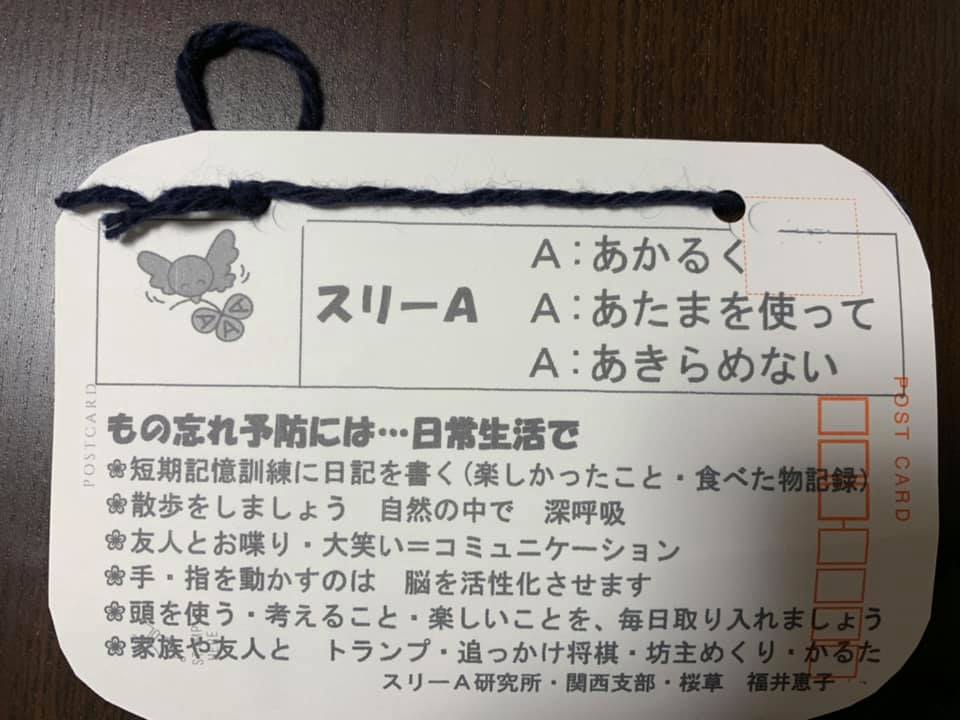 スリーA
A：あかるく
A：あたまを使って
A：あきらめない
もの忘れ予防には…日常生活で
❀短期記憶訓練に日記を書く(楽しかったこと・食べた物記録)
❀散歩をしましょう　自然の中で　深呼吸
❀友人とお喋り・大笑い＝コミュニケーション
❀手・指を動かすのは　脳を活性化させます
❀頭を使う・考えること・楽しいことを、毎日取り入れましょう
❀家族や友人と　トランプ・追っかけ将棋・坊主めくり・かるた
スリーA研究所・関西支部・桜草　福井恵子
POSTCARD
POST CARD
A A A